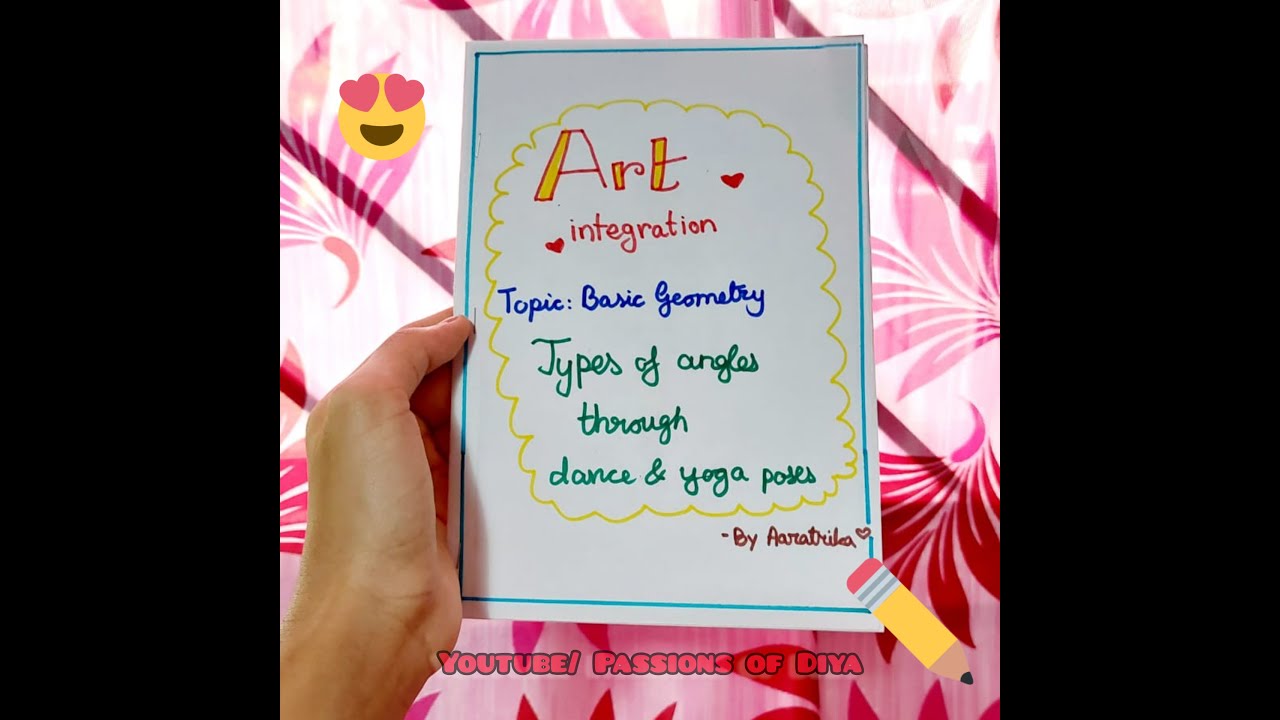 Art
integration
Topic: Basic Geometry
Types of angles
through
dance & yoga poses
-By Aaratrika
Youtube/ Passions of Diya